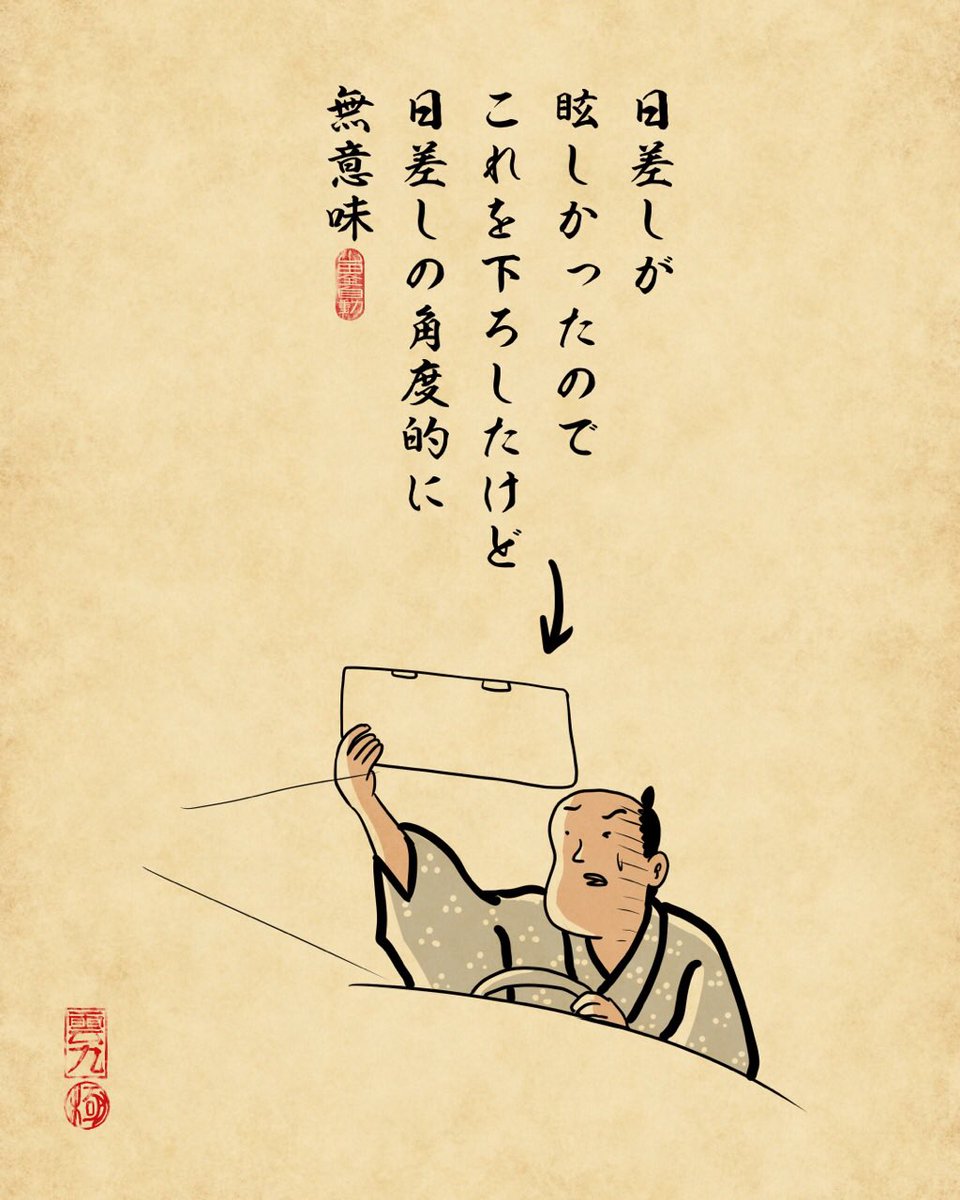 日差しが
眩しかったので
これを下ろしたけど
日差しの角度的に
無意味